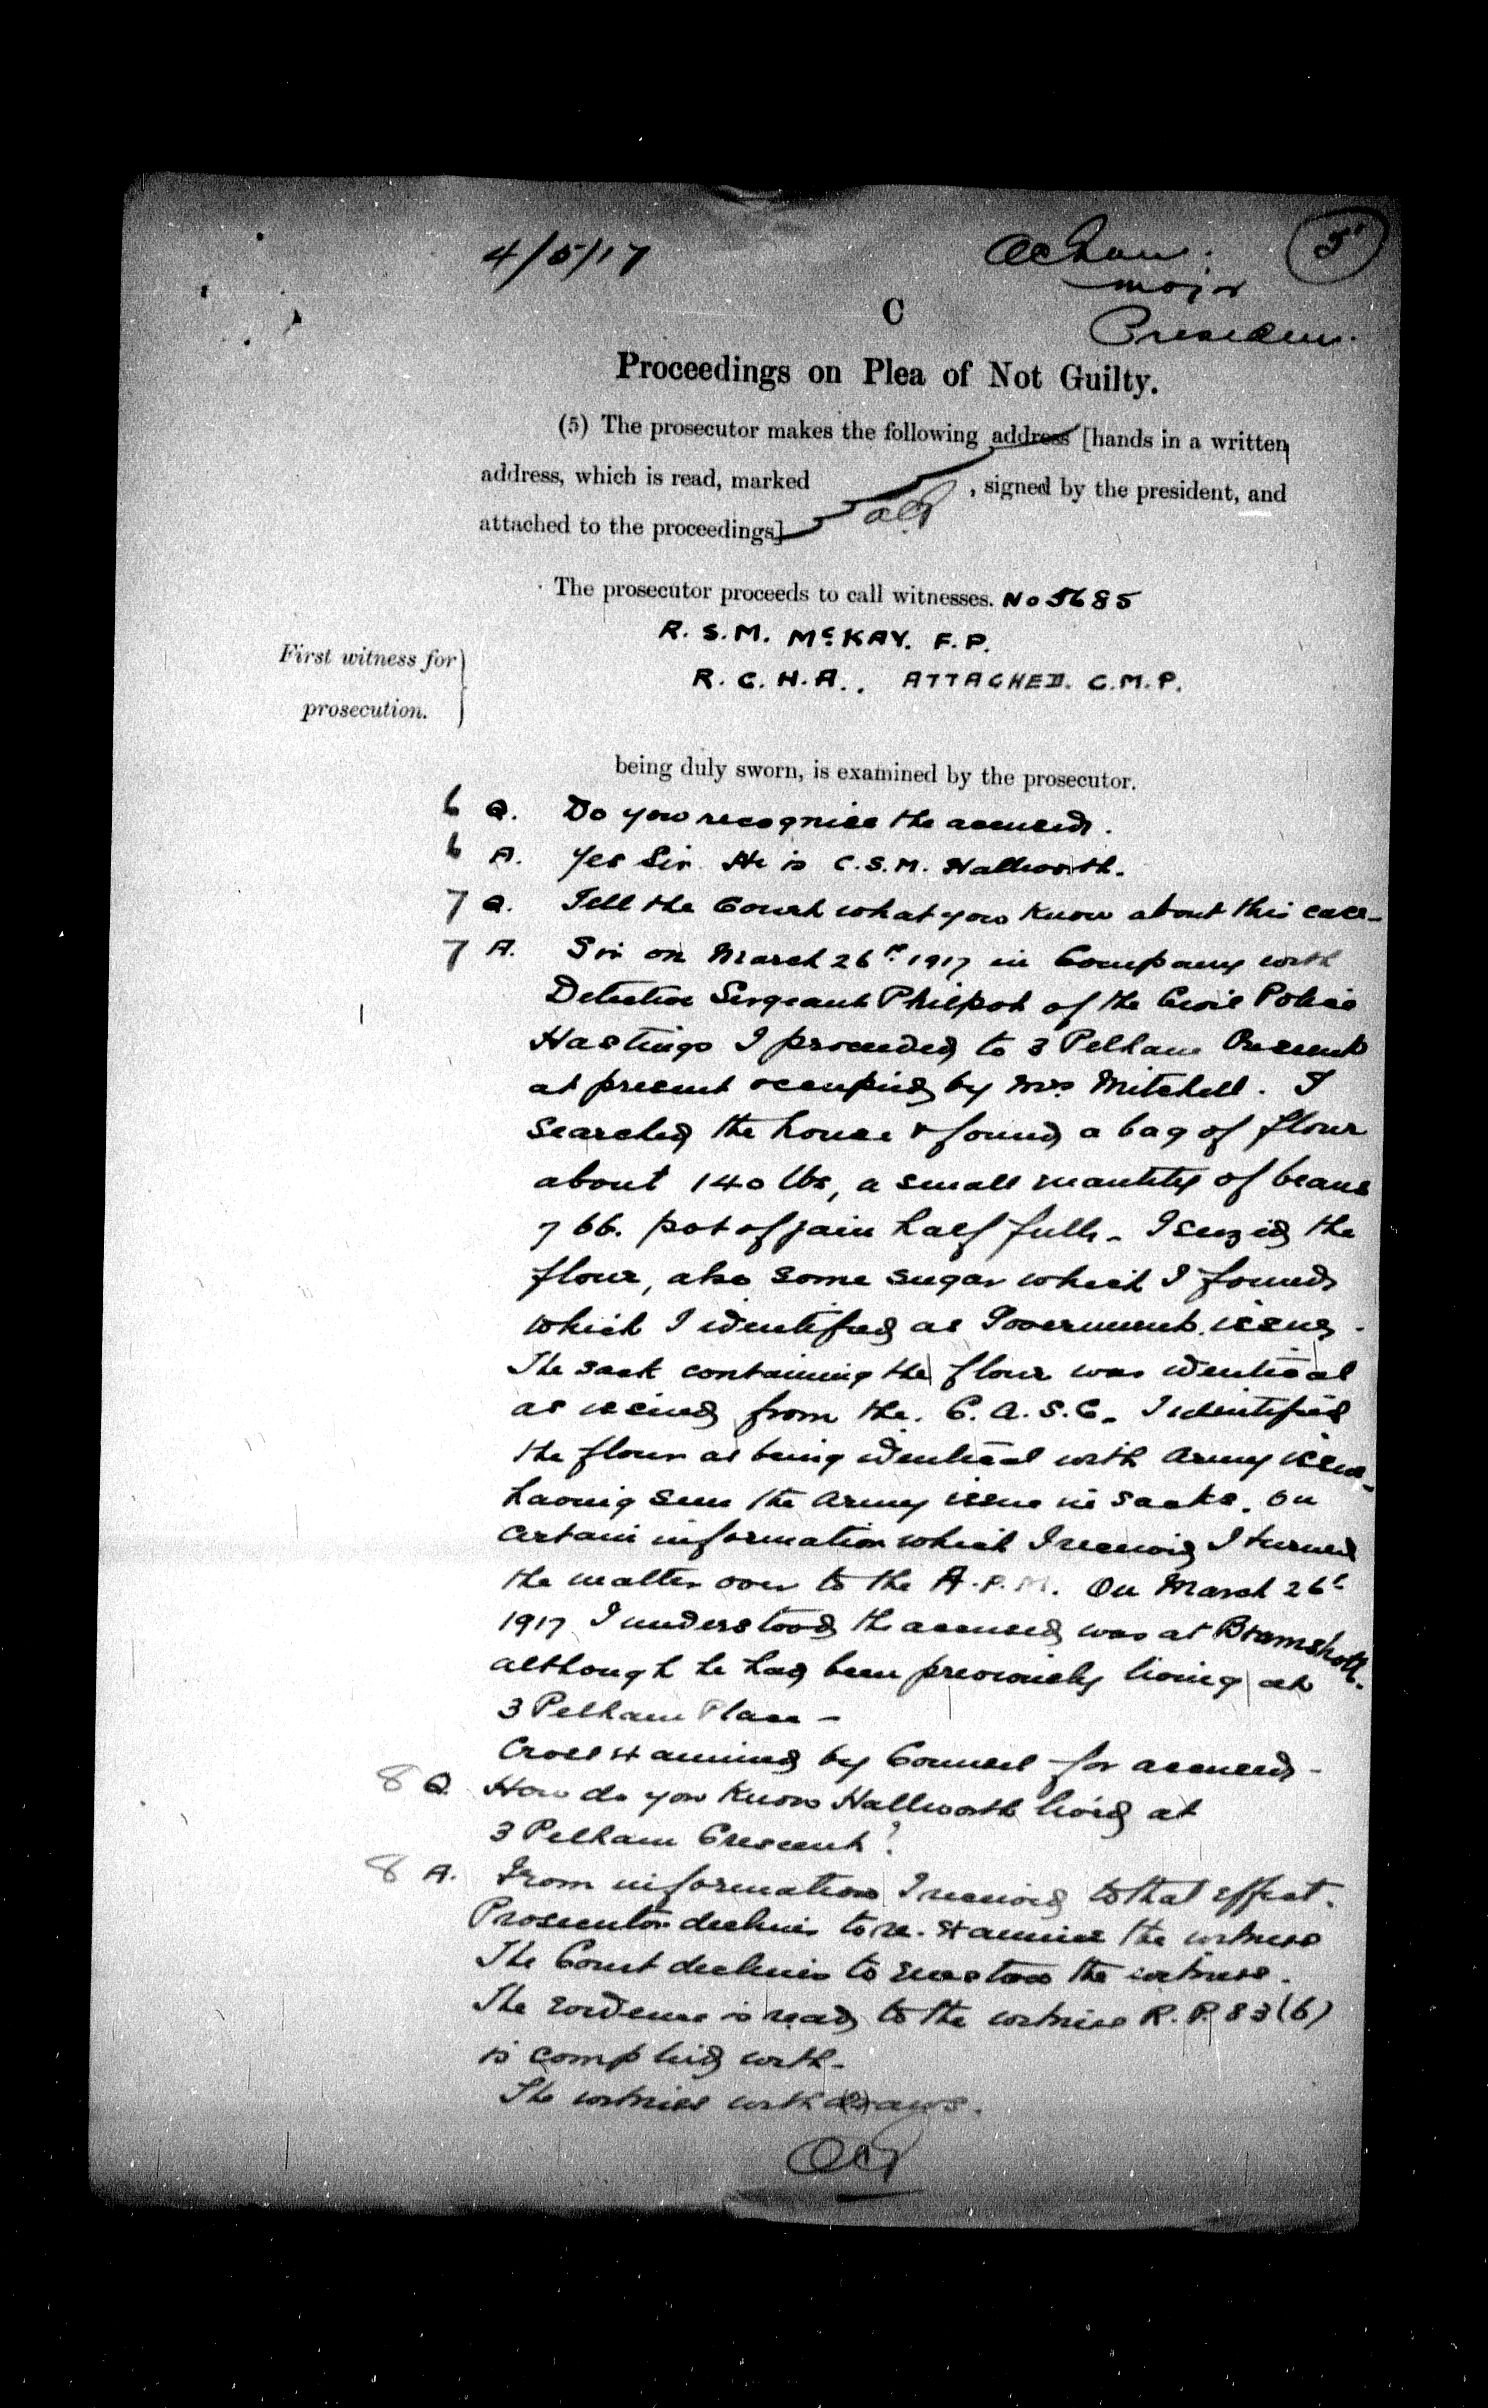 4/5/17
5
Major
President.
C
Proceedings on Plea of Not Guilty.
(5) The prosecutor makes the following address [hands in a written
address, which is read, marked , signed by the president, and
attached to the proceedings]
The prosecutor proceeds to call witnesses. No 5685
R. S. M. McKAY. F. P.
First witness for
prosecution.
R. C. H. A.. ATTACHED. C. M. P.
being duly sworn, is examined by the prosecutor.
6 Q. Do you recognise the accused.
6 A. Yes Sir. He is C.S.M. Hallworth.
7 Q. Tell the Court what you know about this case -
7 A. Sir on March 26th 1917 in Company with
Detective Sergeant Philpot of the Civil Police
Hastings I proceeded to 3 Pelham Crescent
at present occupied by Mrs. Mitchell. I
searched the house & found a bag of flour
about 140 lbs, a small quantity of beans
7 lb. pot of jam half full - I seized the
flour, also some sugar which I found
which I identified as Government issue.
The sack containing the flour was identical
as issued from the C.A.S.C. I identified
the flour as being identical with Army issue -
having seen the Army issue in sacks. On
certain information which I received I turned
the matter over to the A.P.M. On March 26th
1917 I understood the accused was at Bramshott.
although he had been previously living at
3 Pelham Place -
Cross examined by Counsel for accused -
8 Q. How do you know Hallworth lived at
3 Pelham Crescent?
8 A. From information I received to that effect.
Prosecutor declines to re-examine the witness
The Court declines to question the witness.
The evidence is read to the witness R.P. 83(b)
is complied with -
The witness withdraws.